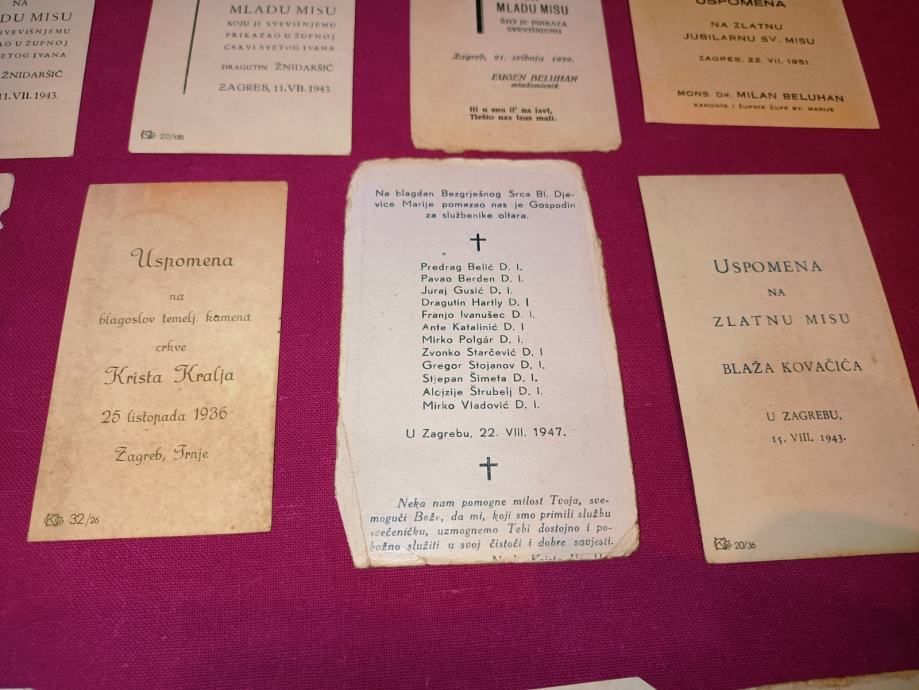 NA
DU MISU
SVEVIŠNJEMU
AO U ŽUPNOJ
ETOG IVANA
ŽNIDARŠIĆ
11.VII. 1943.
MLADU MISU
KOJU JE SVEVIŠNJEMU
PRIKAZAO U ŽUPNOJ
CRKVI SVETOG IVANA
DRAGUTIN ŽNIDARŠIĆ
ZAGREB, 11.VII. 1943.
MLADU MISU
ŠTO JE PRIKAZA
SVEVIŠNJEMU
Zagreb, 21. svibnja 1939.
EUGEN BELUHAN
mladomisnik
Tješio nas Isus mali.
USPOMENA
NA ZLATNU
JUBILARNU SV. MISU
ZAGREB, 22. VII. 1951.
MONS. DR. MILAN BELUHAN
KANONIK I ŽUPNIK ŽUPE SV. MARIJE
Uspomena
na
blagoslov temelj. kamena
crkve
Krista Kralja
25 listopada 1936
Zagreb, Trnje
32/26
Na blagdan Bezgrješnog Srca Bl. Dje-
vice Marije pomazao nas je Gospodin
za službenike oltara.
Predrag Belić D. I.
Pavao Berden D. I.
Juraj Gusić D. I.
Dragutin Hartly D. I
Franjo Ivanušec D. I.
Ante Katalinić D. I
Mirko Polgár D. I.
Zvonko Starčević D. I
Gregor Stojanov D. I.
Stjepan Šimeta D. I.
Alojzije Štrubelj D. I.
Mirko Vladović D. I.
U Zagrebu, 22. VIII. 1947.
Neka nam pomogne milost Tvoja, sve-
mogući Bože, da mi, koji smo primili službu
svećeničku, uzmognemo Tebi dostojno i po-
božno služiti u svoj čistoći i dobre savjesti.
USPOMENA
NA
ZLATNU MISU
BLAŽA KOVAČIĆA
U ZAGREBU,
15. VIII. 1943.
20/36